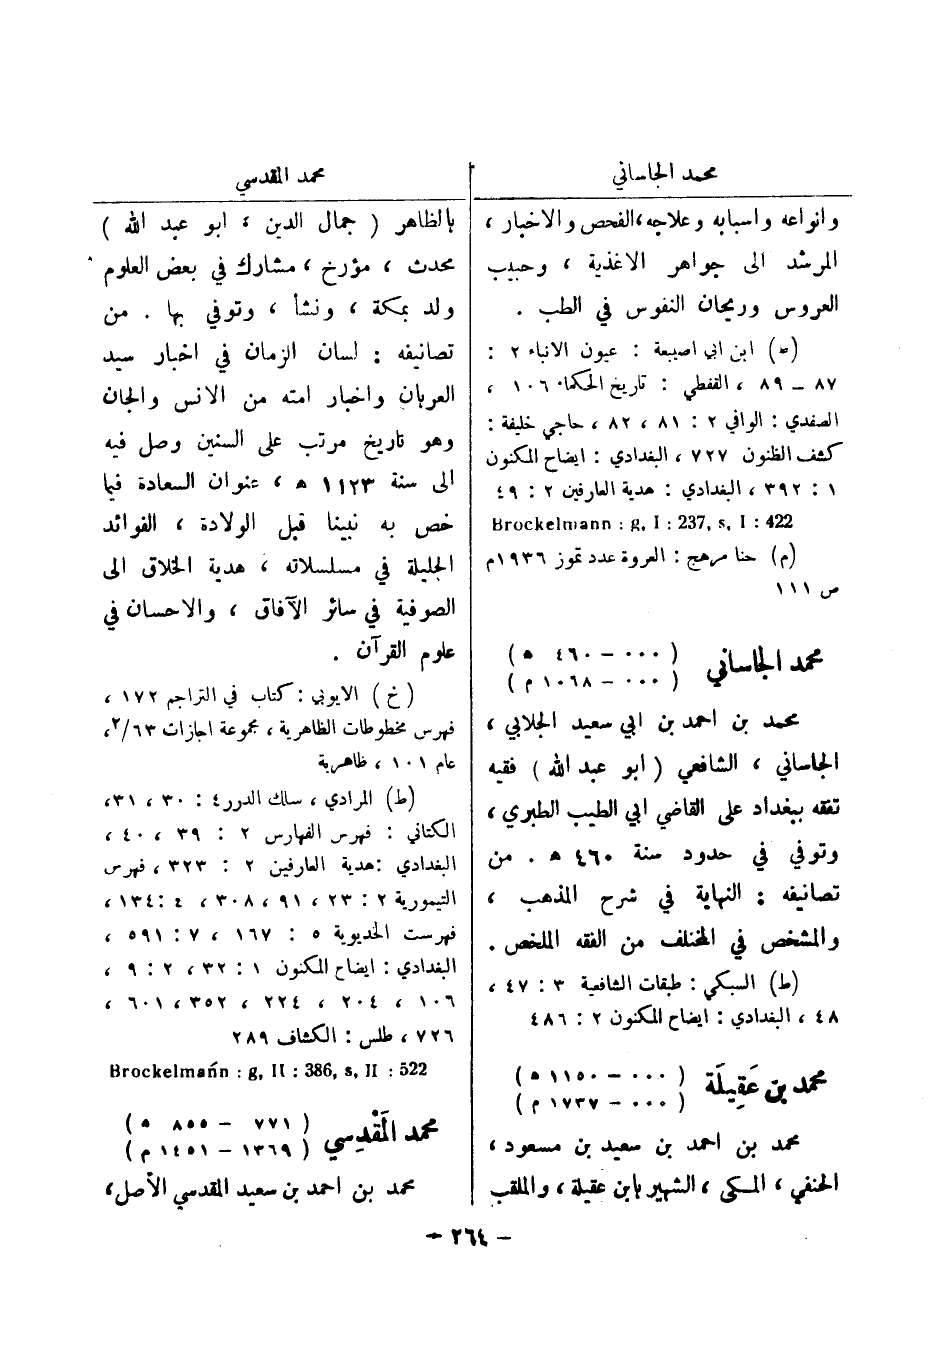 محمد الجاساني
وانواعه واسبابه وعلاجه، الفحص والاخبار ،
المرشد الى جواهر الاغذية ، وحبيب
العروس وريحان النفوس في الطب .
(ط) ابن ابي اصيبعة : عيون الانباء ٢ :
٨٧ – ٨٩ ، القفطي : تاريخ الحكماء ١٠٦ ،
الصفدي : الوافي ٢ : ٨١ ، ٨٢ ، حاجي خليفة :
كشف الظنون ٧٢٧ ، البغدادي : ايضاح المكنون
١ : ٣٩٢ ، البغدادي : هدية العارفين ٢ : ٤٩
Brockelmann : g, I : 237, s, I : 422
(م) حنا مرهج : العروة عدد تموز ١٩٣٦م
ص ١١١
محمد الجاساني ( ٠٠٠ – ٤٦٠ ه )
( ٠٠٠ – ١٠٦٨ م )
محمد بن احمد بن ابي سعيد الجلابي ،
الجاساني ، الشافعي ( ابو عبد الله ) فقيه
تفقه ببغداد على القاضي ابي الطيب الطبري ،
وتوفي في حدود سنة ٤٦٠ ه . من
تصانيفه : النهاية في شرح المذهب ،
والمشخص في المختلف من الفقه الملخص .
(ط) السبكي : طبقات الشافعية ٣ : ٤٧ ،
٤٨ ، البغدادي : ايضاح المكنون ٢ : ٤٨٦
محمد بن عَقِيلَة ( ٠٠٠ – ١١٥٠ ه )
( ٠٠٠ – ١٧٣٧ م )
محمد بن احمد بن سعيد بن مسعود ،
الحنفي ، المكي ، الشهير بابن عقيلة ، والملقب
محمد المقدسي
بالظاهر ( جمال الدين ، ابو عبد الله )
محدث ، مؤرخ ، مشارك في بعض العلوم
ولد بمكة ، ونشأ ، وتوفي بها . من
تصانيفه : لسان الزمان في اخبار سيد
العربان واخبار امته من الانس والجان
وهو تاريخ مرتب على السنين وصل فيه
الى سنة ١١٢٣ ه ، عنوان السعادة فيما
خص به نبينا قبل الولادة ، الفوائد
الجليلة في مسلسلاته ، هدية الخلاق الى
الصوفية في سائر الآفاق ، والاحسان في
علوم القرآن .
(خ) الايوبي : كتاب في التراجم ١٧٢ ،
فهرس مخطوطات الظاهرية ، مجموعة اجازات ٢/٦٣،
عام ١٠١ ، ظاهرية
(ط) المرادي ، سلك الدرر ٤ : ٣٠ ، ٣١،
الكتاني : فهرس الفهارس ٢ : ٣٩ ، ٤٠ ،
البغدادي : هدية العارفين ٢ : ٣٢٣ ، فهرس
التيمورية ٢ : ٢٣ ، ٩١ ، ٣٠٨ ، ٤ : ١٣٤ ،
فهرست الخديوية ٥ : ١٦٧ ، ٧ : ٥٩١ ،
البغدادي : ايضاح المكنون ١ : ٣٢ ، ٢ : ٩ ،
١٠٦ ، ٢٠٤ ، ٢٢٤ ، ٣٥٢ ، ٦٠١ ،
٧٢٦ ، طلس : الكشاف ٢٨٩
Brockelmann : g, II : 386, s, II : 522
محمد المَقْدِسي ( ٧٧١ – ٨٥٥ ه )
( ١٣٦٩ – ١٤٥١ م )
محمد بن احمد بن سعيد المقدسي الأصل،
– ٢٦٤ –